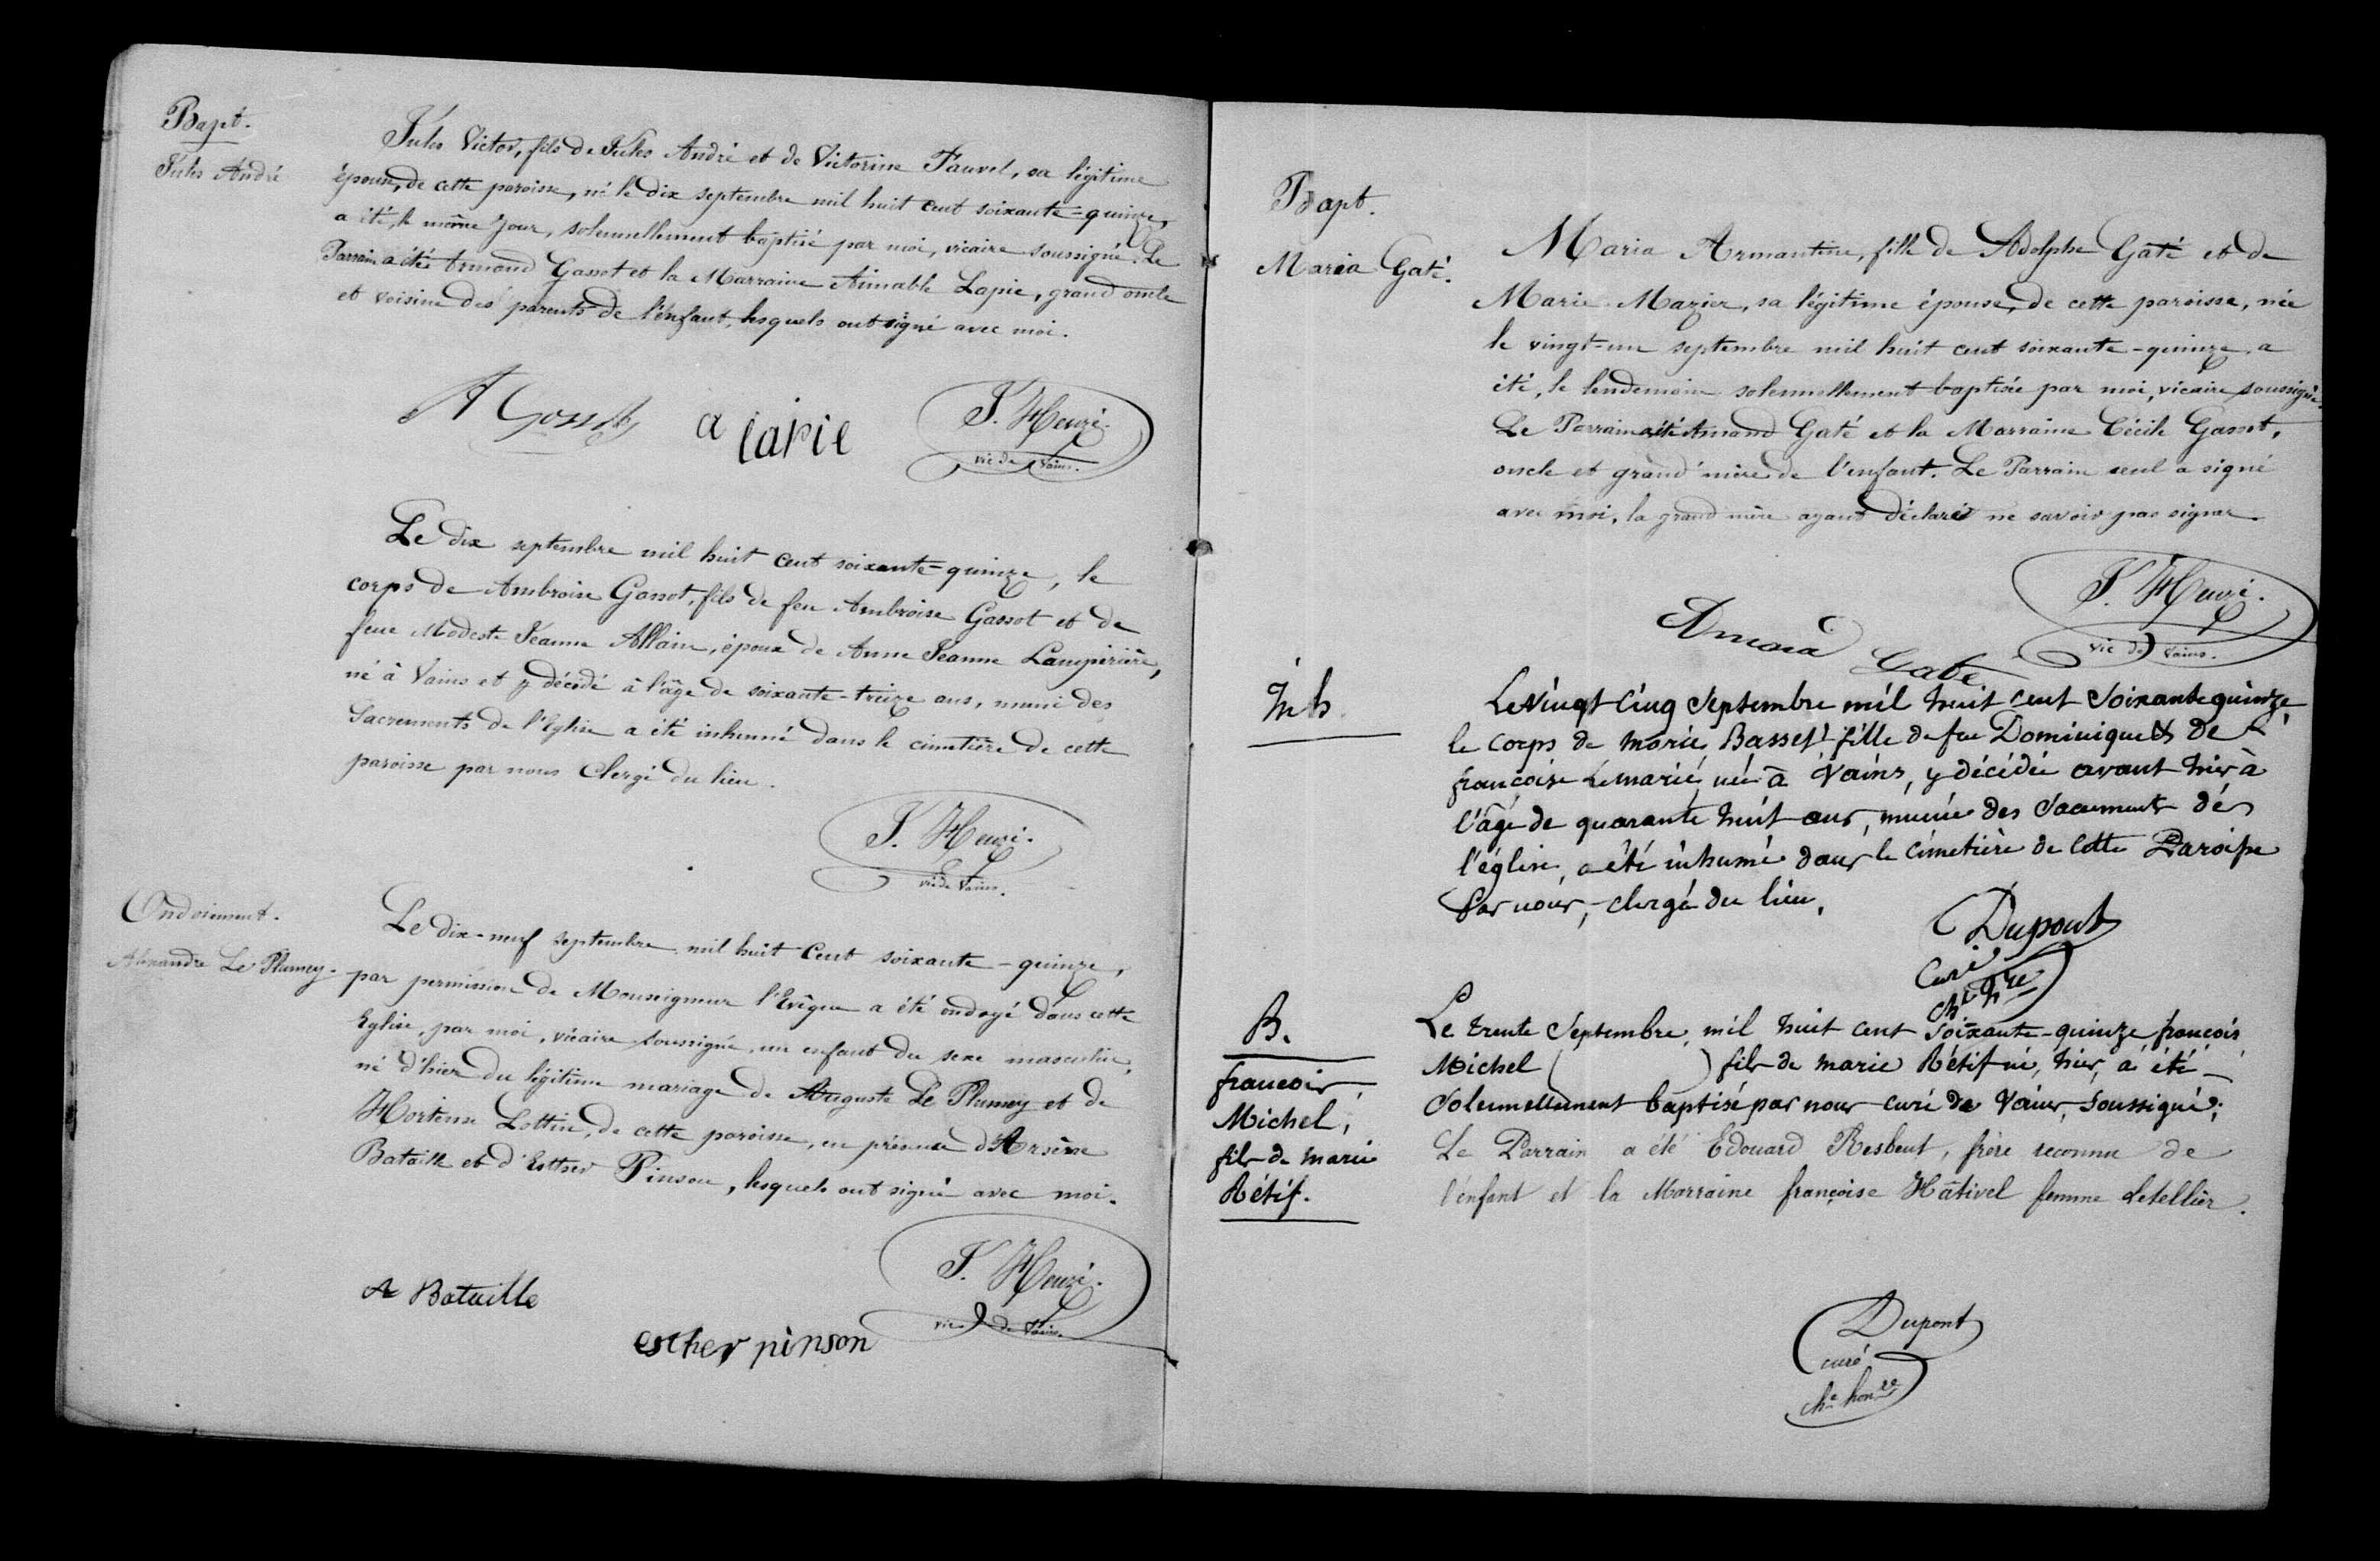 Bapt.
Jules André
Jules Victor, fils de Jules André et de Victorine Fauvel, sa légitime
épouse, de cette paroisse, né le dix septembre mil huit cent soixante-quinze,
a été, le même jour, solennellement baptisé par moi, vicaire soussigné. Le
Parrain a été Armand Gassot et la Marraine Aimable Lapie, grand oncle
et voisine des parents de l'enfant, lesquels ont signé avec moi.
A Gossot
a lapie
J. Heuzé.
vic de Vains.
Le dix septembre mil huit cent soixante-quinze, le
corps de Ambroise Gassot, fils de feu Ambroise Gassot et de
feue Modeste Jeanne Allain, époux de Anne Jeanne Lampérière,
né à Vains et y décédé à l'âge de soixante-treize ans, muni des
Sacrements de l'Eglise a été inhumé dans le cimetière de cette
paroisse par nous Clergé du lieu.
J. Heuzé.
vic de Vains.
Ondoiement.
Alexandre Le Plumey.
Le dix-neuf septembre mil huit cent soixante-quinze,
par permission de Monseigneur l'Evêque a été ondoyé dans cette
Eglise, par moi, vicaire soussigné, un enfant du sexe masculin,
né d'hier du légitime mariage de Auguste Le Plumey et de
Hortense Lottin, de cette paroisse, en présence d'Arsène
Bataille et d'Esther Pinson, lesquels ont signé avec moi.
A Bataille
esther pinson
J. Heuzé.
vic de Vains.
Bapt.
Maria Gaté.
Maria Armantine, fille de Adolphe Gaté et de
Marie Mazier, sa légitime épouse, de cette paroisse, née
le vingt-un septembre mil huit cent soixante-quinze, a
été, le lendemain solennellement baptisée par moi, vicaire soussigné.
Le Parrain a été Amand Gaté et la Marraine Cécile Gassot,
oncle et grand'mère de l'enfant. Le Parrain seul a signé
avec moi, la grand mère ayant déclaré ne savoir pas signer.
Amand Gaté
J. Heuzé.
vic de Vains.
Inh.
Le Vingt Cinq Septembre mil huit cent Soixante quinze
le corps de marie Basset fille de feu Dominique et de
françoise Lemarié, née à Vains, y décédée avant hier à
l'âge de quarante huit ans, munie des Sacements de
l'église, a été inhumé dans le cimetière de cette Paroisse
Par nous, clergé du lieu.
Dupont
Curé
B.
françois
Michel,
fils de marie
Rétif.
Le trente Septembre, mil huit cent Soixante-quinze françois
Michel ( ) fils de marie Rétif né, hier, a été
Solennellement baptisé par nous curé de Vains, Soussigné;
Le Parrain a été Edouard Resbeut, frère reconnu de
l'enfant et la Marraine françoise Hâtivel femme Letellier.
Dupont
curé
che honre